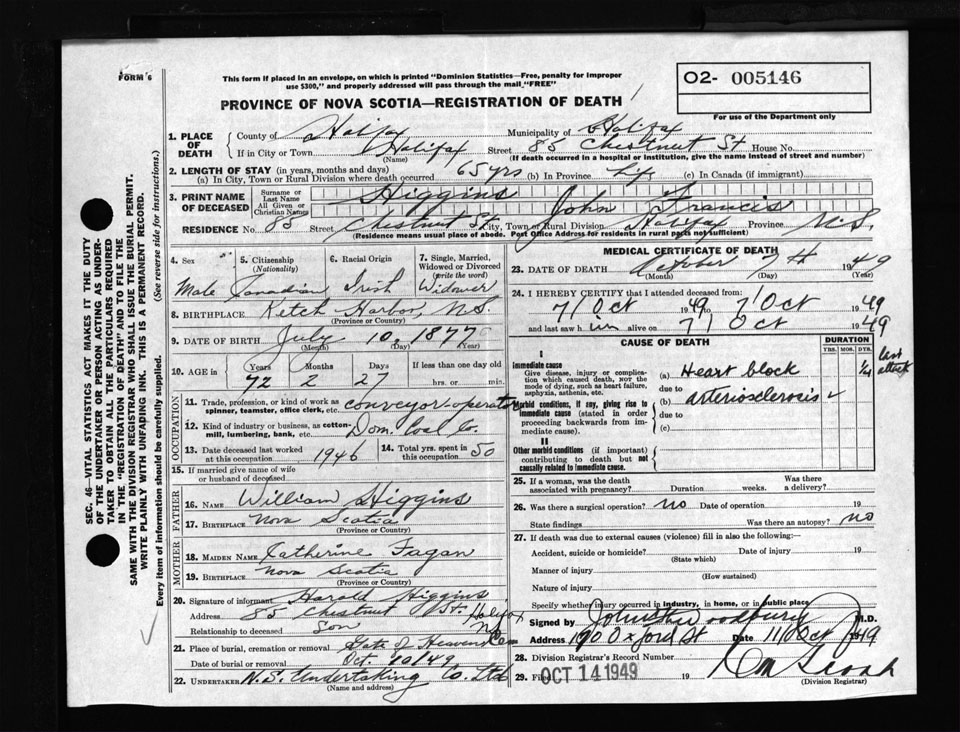 FORM 6
This form if placed in an envelope, on which is printed "Dominion Statistics—Free, penalty for improper
use $300," and properly addressed will pass through the mail "FREE"
O2- 005146
For use of the Department only
PROVINCE OF NOVA SCOTIA—REGISTRATION OF DEATH
1. PLACE OF DEATH County of Halifax Municipality of Halifax
If in City or Town Halifax (Name) Street 85 Chestnut St House No.
(If death occurred in a hospital or institution, give the name instead of street and number)
2. LENGTH OF STAY (in years, months and days)
(a) In City, Town or Rural Division where death occurred 65 yrs (b) In Province Life (c) In Canada (if immigrant)
3. PRINT NAME OF DECEASED Surname or Last Name Higgins
All Given or Christian Names John Francis
RESIDENCE No. 85 Street Chestnut St. City, Town or Rural Division Halifax Province N.S.
(Residence means usual place of abode. Post Office Address for residents in rural parts not sufficient)
4. Sex Male
5. Citizenship (Nationality) Canadian
6. Racial Origin Irish
7. Single, Married, Widowed or Divorced (write the word) Widower
8. BIRTHPLACE Ketch Harbor, N.S.
(Province or Country)
9. DATE OF BIRTH July (Month) 10, (Day) 1877 (Year)
10. AGE in Years 72 Months 2 Days 27 If less than one day old hrs. or min.
OCCUPATION
11. Trade, profession, or kind of work as spinner, teamster, office clerk, etc. conveyor-operator
12. Kind of industry or business, as cotton-mill, lumbering, bank, etc. Dom. Coal Co.
13. Date deceased last worked at this occupation 1946
14. Total yrs. spent in this occupation 50
15. If married give name of wife or husband of deceased
FATHER
16. NAME William Higgins
17. BIRTHPLACE Nova Scotia
(Province or Country)
MOTHER
18. MAIDEN NAME Catherine Fagan
19. BIRTHPLACE Nova Scotia
(Province or Country)
20. Signature of informant Harold Higgins
Address 85 Chestnut St. Halifax N.S.
Relationship to deceased Son
21. Place of burial, cremation or removal Gate of Heaven Cem
Date of burial or removal Oct. 10/49
22. UNDERTAKER N.S. Undertaking Co. Ltd
(Name and address)
MEDICAL CERTIFICATE OF DEATH
23. DATE OF DEATH October (Month) 7th (Day) 1949 (Year)
24. I HEREBY CERTIFY that I attended deceased from:
7 Oct 1949 to 7 Oct 1949
and last saw him alive on 7 Oct 1949
CAUSE OF DEATH
DURATION
YRS. MOS. DYS.
I
Immediate cause
Give disease, injury or complication which caused death, NOT the mode of dying, such as heart failure, asphyxia, asthenia, etc.
(a) Heart block 1/4 last attack
due to
Morbid conditions, if any, giving rise to immediate cause (stated in order proceeding backwards from immediate cause).
(b) arteriosclerosis
due to
(c)
II
Other morbid conditions (if important) contributing to death but not causally related to immediate cause.
25. If a woman, was the death associated with pregnancy? Duration weeks. Was there a delivery?
26. Was there a surgical operation? no Date of operation 19
State findings Was there an autopsy? no
27. If death was due to external causes (violence) fill in also the following:—
Accident, suicide or homicide? Date of injury 19
(State which)
Manner of injury
(How sustained)
Nature of injury
Specify whether injury occurred in industry, in home, or in public place
Signed by M.D.
Address 190 Oxford St Date 11 Oct 1949
28. Division Registrar's Record Number
29. Filed OCT 14 1949 19
(Division Registrar)
SEC. 46—VITAL STATISTICS ACT MAKES IT THE DUTY
OF THE UNDERTAKER OR PERSON ACTING AS UNDER-
TAKER TO OBTAIN ALL THE PARTICULARS REQUIRED
IN THE "REGISTRATION OF DEATH" AND TO FILE THE
SAME WITH THE DIVISION REGISTRAR WHO SHALL ISSUE THE BURIAL PERMIT.
WRITE PLAINLY WITH UNFADING INK. THIS IS A PERMANENT RECORD.
Every item of information should be carefully supplied. (See reverse side for instructions.)